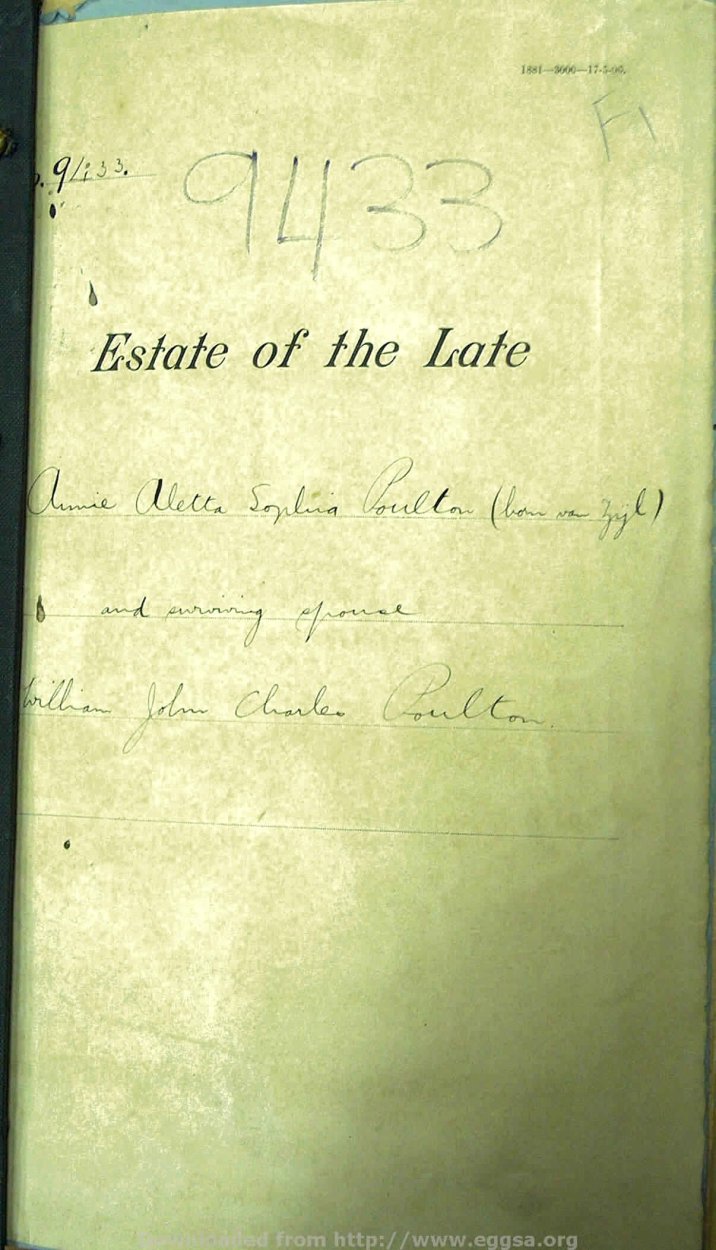 1881—3000—17-5-00.
F1
9433
Estate of the Late
Annie Aletta Sophia Poulton (born van Zyl)
and surviving spouse
William John Charles Poulton.
Downloaded from http://www.eggsa.org